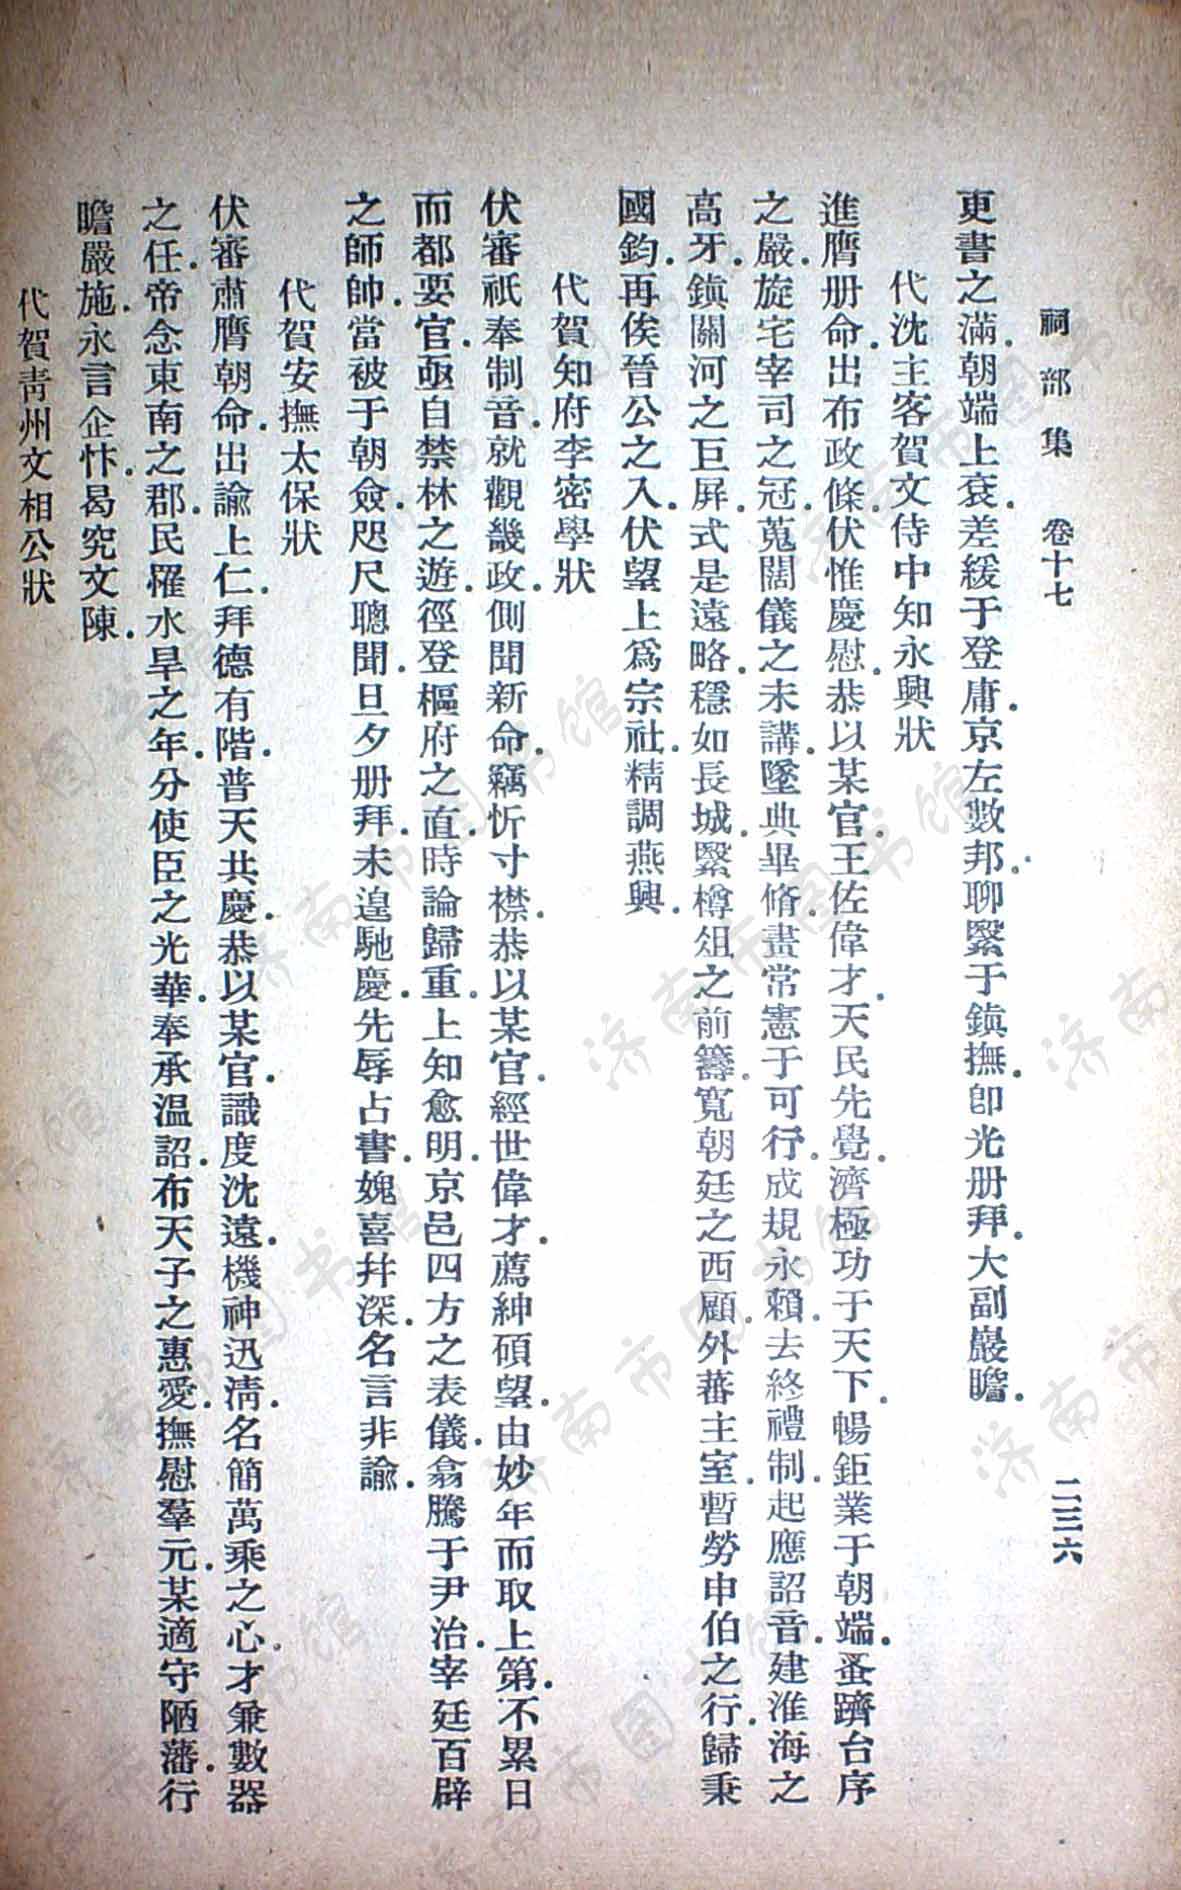 祠部集　卷十七　二三六
更書之滿.朝端上衮.差緩于登庸.京左數邦.聊緊于鎮撫.卽光册拜.大副巖瞻.
代沈主客賀文侍中知永興狀
進膺册命.出布政條.伏惟慶慰.恭以某官.王佐偉才.天民先覺.濟極功于天下.暢鉅業于朝端.蚤躋台序
之嚴.旋宅宰司之冠.蒐闊儀之未講.墜典畢脩.畫常憲于可行.成規永賴.去終禮制.起應詔音.建淮海之
高牙.鎮關河之巨屏.式是遠略.穩如長城.緊樽俎之前籌.寬朝廷之西顧.外蕃主室.暫勞申伯之行.歸秉
國鈞.再俟晉公之入.伏望上爲宗社.精調燕興.
代賀知府李密學狀
伏審祇奉制音.就觀畿政.側聞新命.竊忻寸襟.恭以某官.經世偉才.薦紳碩望.由妙年而取上第.不累日
而都要官.亟自禁林之遊.徑登樞府之直.時論歸重.上知愈明.京邑四方之表儀.翕騰于尹治.宰廷百辟
之師帥.當被于朝僉.咫尺聰聞.旦夕册拜.未遑馳慶.先辱占書.媿喜幷深.名言非諭.
代賀安撫太保狀
伏審肅膺朝命.出諭上仁.拜德有階.普天共慶.恭以某官.識度沈遠.機神迅淸.名簡萬乘之心.才兼數器
之任.帝念東南之郡.民罹水旱之年.分使臣之光華.奉承温詔.布天子之惠愛.撫慰羣元.某適守陋藩.行
瞻嚴施.永言企忭.曷究文陳.
代賀靑州文相公狀
济南市图书馆